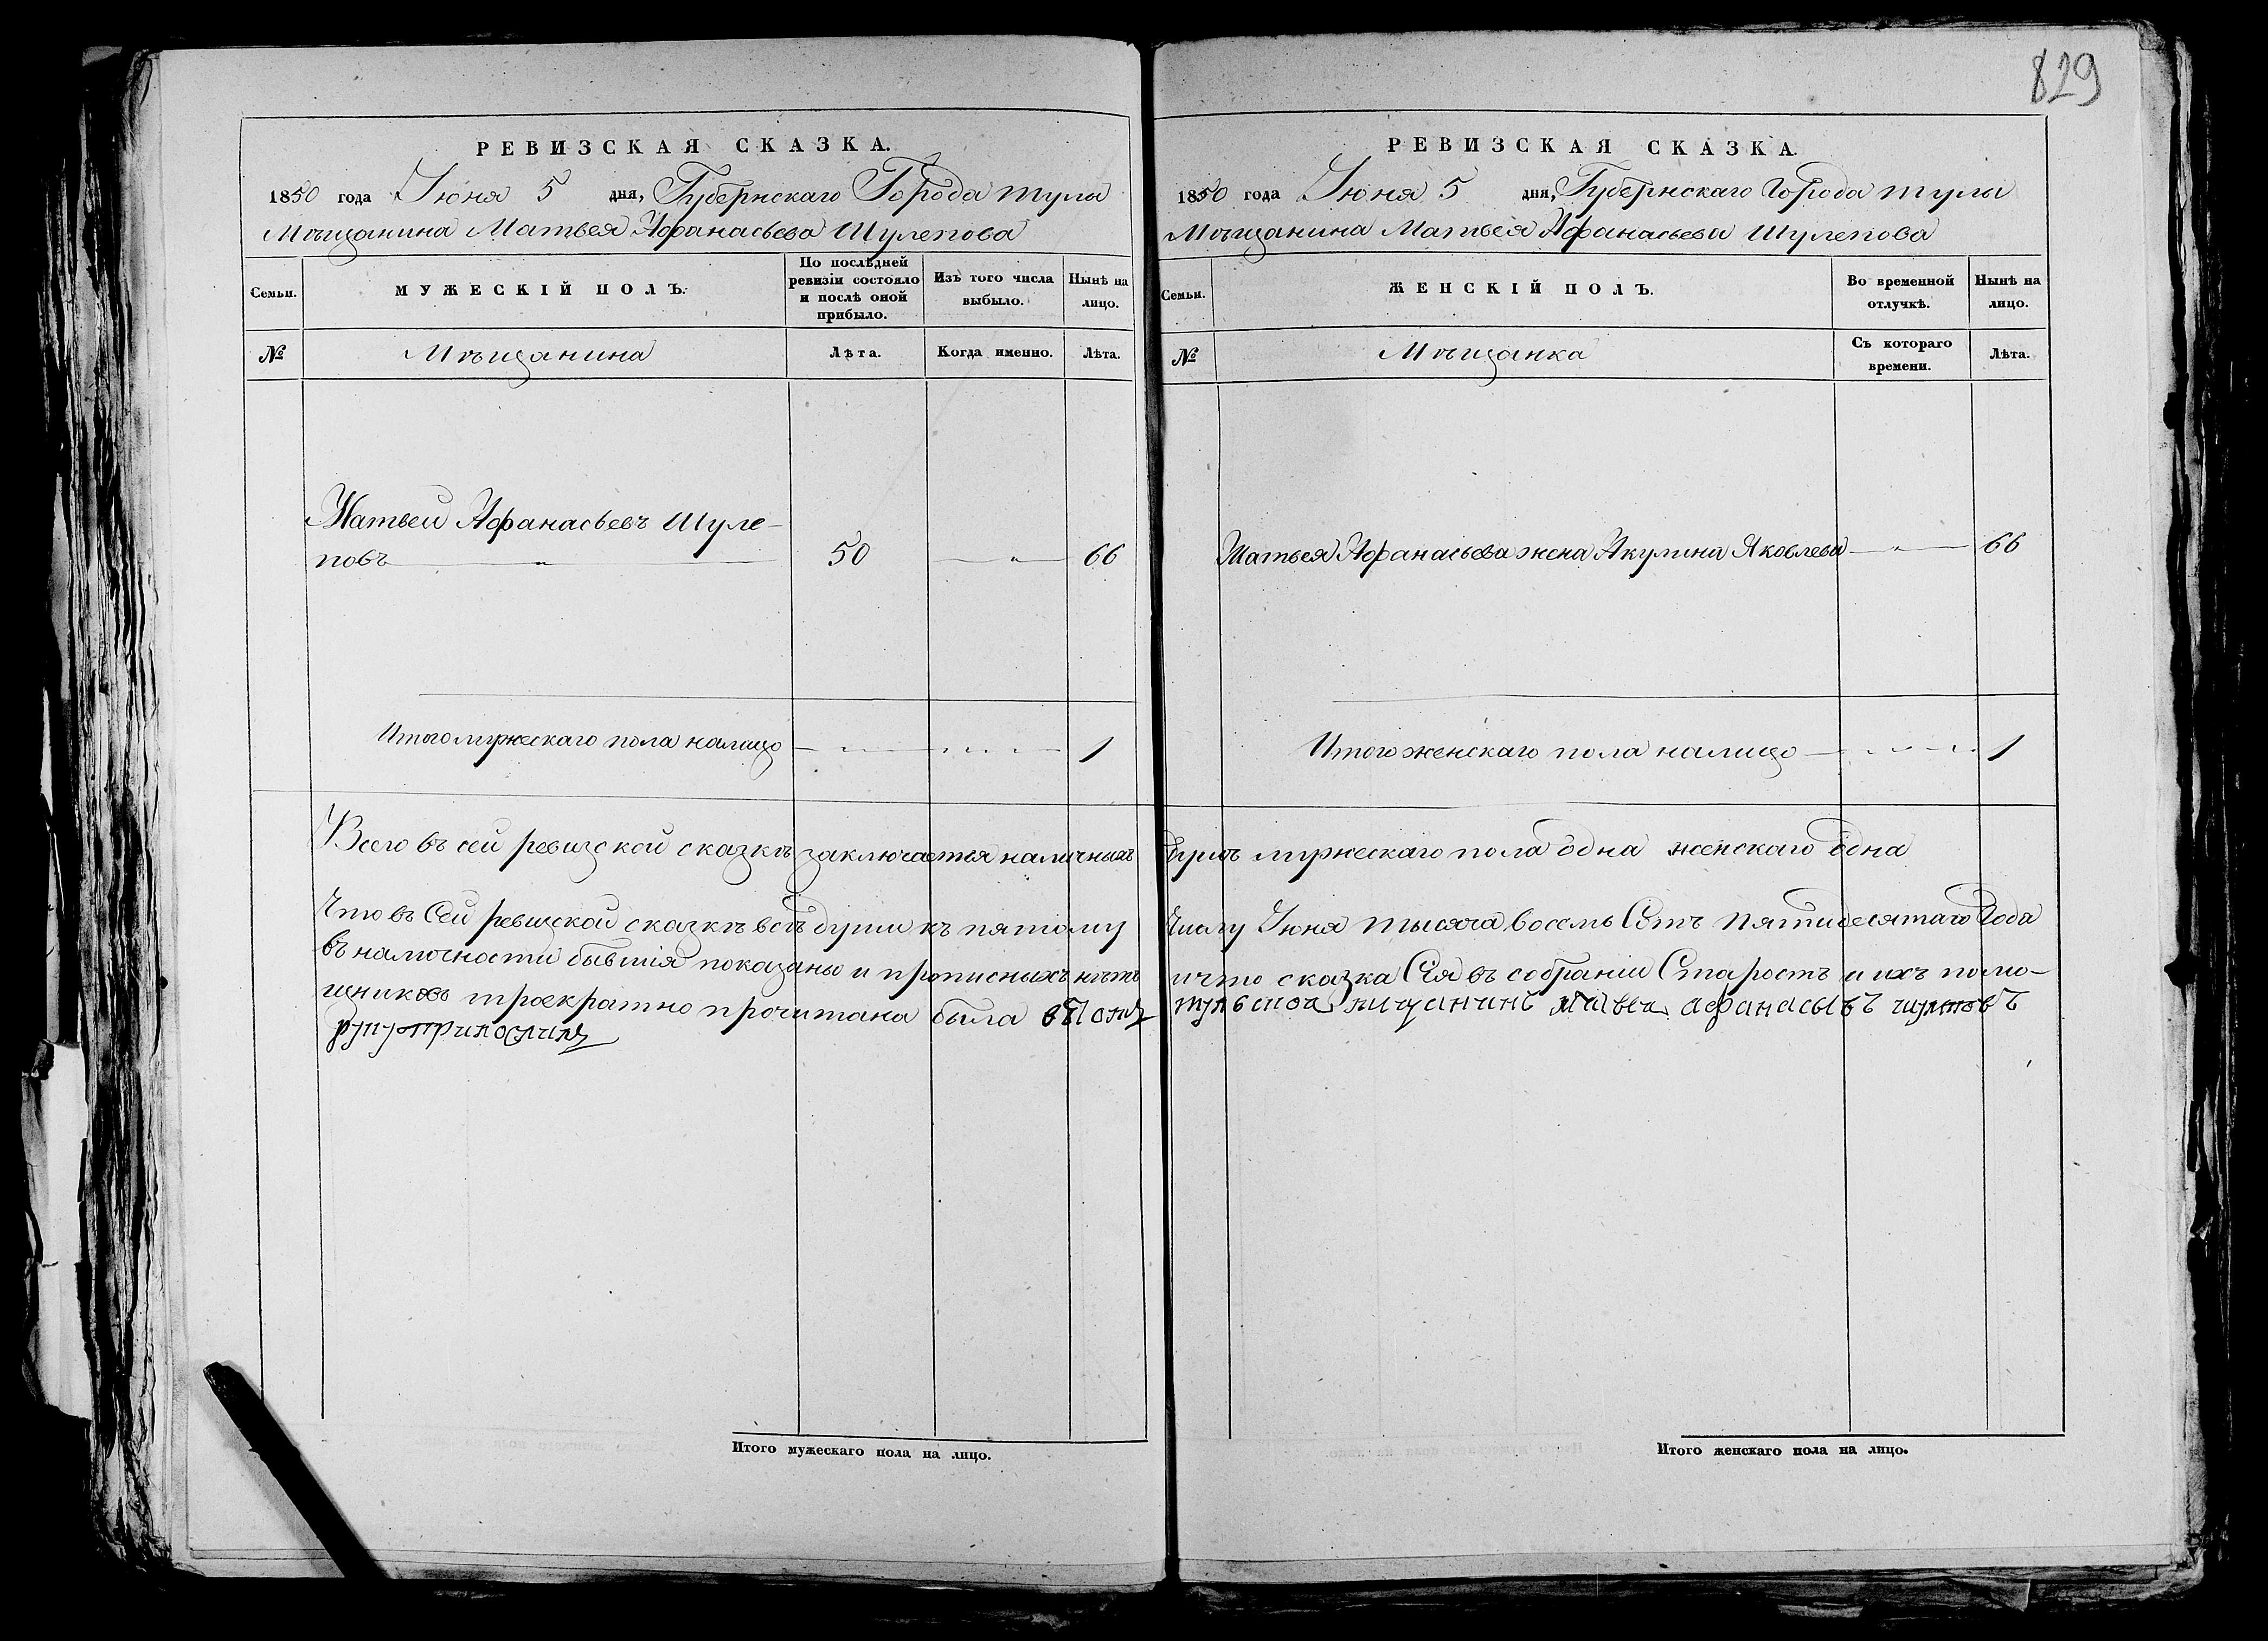 829
РЕВИЗСКАЯ СКАЗКА.
1850 года Июня 5 дня, Губернскаго Города тулы
Мѣщанина Матвея Афанасьева Шулепова
Семьи.
МУЖЕСКІЙ ПОЛЪ.
По послѣдней
ревизіи состояло
и послѣ оной
прибыло.
Изъ того числа
выбыло.
Нынѣ на
лицо.
№ Мѣщанина Лѣта. Когда именно. Лѣта.
Матвей Афанасьевъ Шуле-
повъ 50 66
Итого мужескаго пола налицо 1
РЕВИЗСКАЯ СКАЗКА.
1850 года Июня 5 дня, Губернскаго Города тулы
Мѣщанина Матвея Афанасьева Шулепова
Семьи.
ЖЕНСКІЙ ПОЛЪ.
Во временной
отлучкѣ.
Нынѣ на
лицо.
№ Мѣщанка
Съ котораго
времени.
Лѣта.
Матвея Афанасьева жена Акулина Яковлева 66
Итого женскаго пола налицо 1
Всего въ сей ревизской сказкѣ заключается наличныхъ душъ мужескаго пола одна женскаго одна
Что въ Сей ревизской сказкѣ всѣ души къ пятому Числу Июня тысяча восемь Сотъ пятидесятаго Года
въ наличности бывшія показаны и прописныхъ нѣтъ и что сказка Сія въ собраніи Старостъ и ихъ помо-
щниковъ троекратно прочитана была
афанасьівъ
Итого мужескаго пола на лицо.
Итого женскаго пола на лицо.